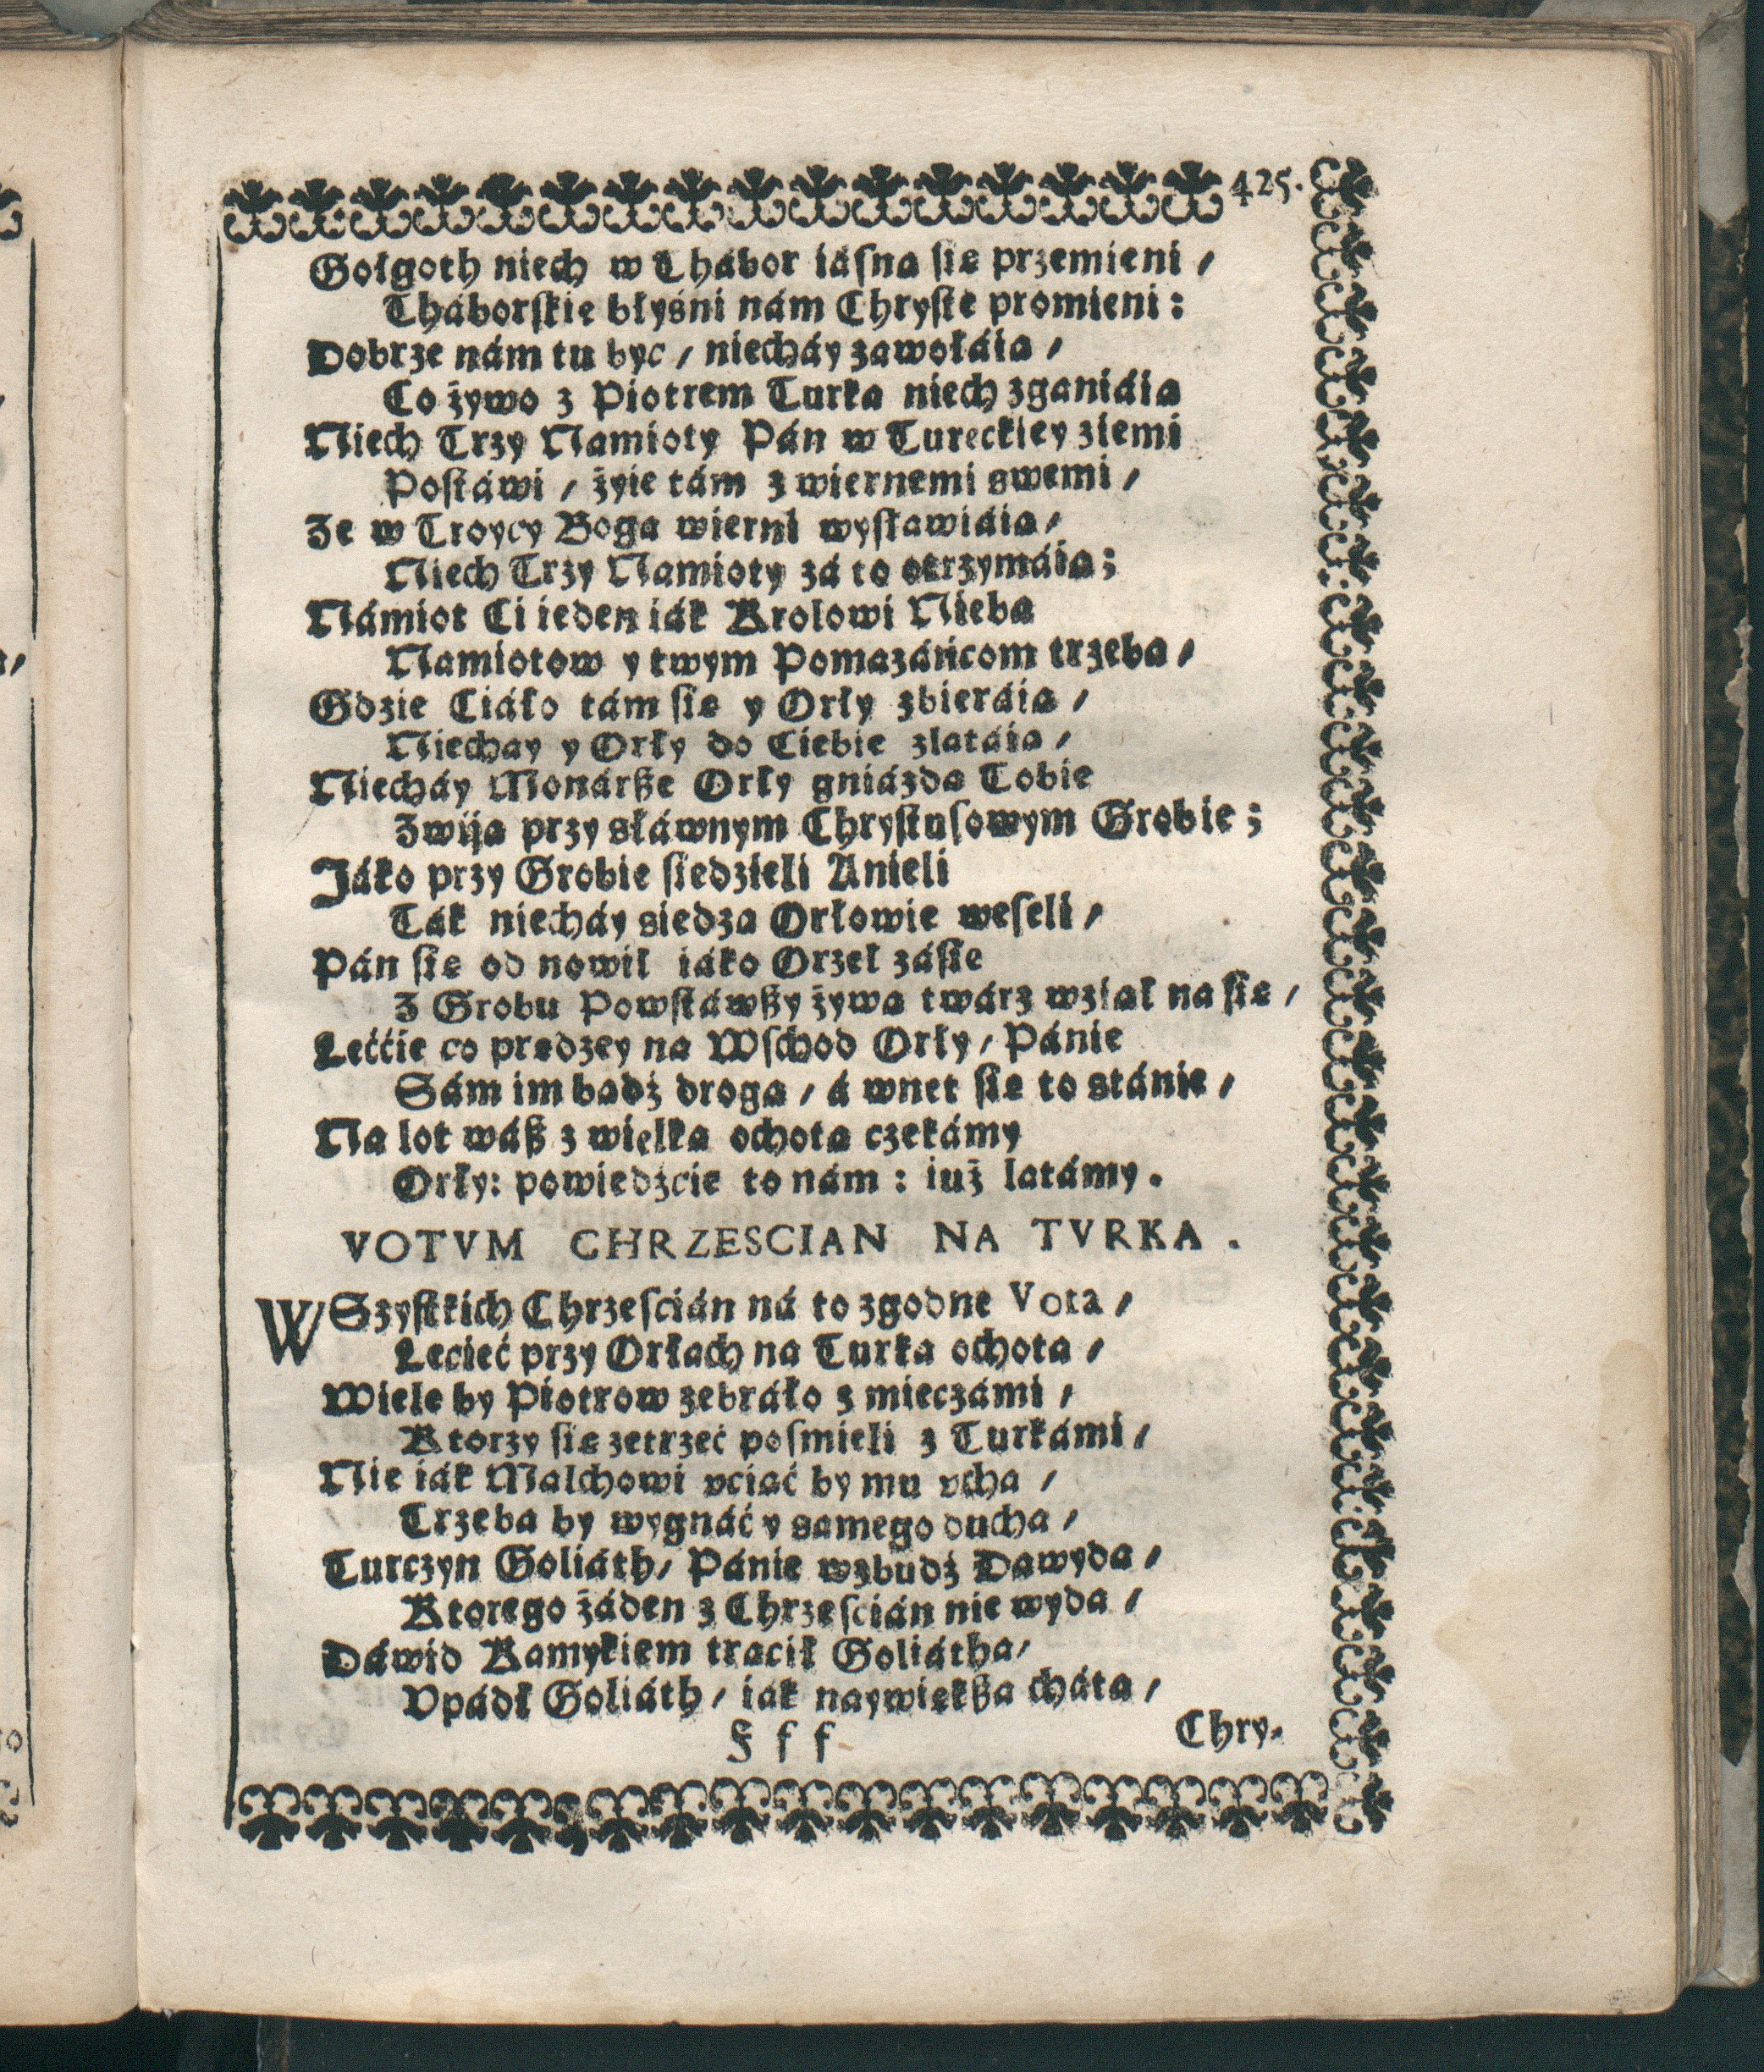 425.
Gołgoth niech w Thábor iásna się przemieni /
Tháborſkie błyśni nám Chryſte promieni :
Dobrze nám tu byc / niecháy záwołáią /
Co żywo z Piotrem Turká niech zgániáią
Niech Trzy Namioty Pán w Tureckiey ziemi
Poſtáwi / żyie tám z wiernemi swemi /
Ze w Troycy Bogá wierni wyſławiáią /
Niech Trzy Namioty zá to otrzymáią ;
Námiot Ci ieden iák Krolowi Niebá
Namiotow y twym Pomazáńcom trzebá /
Gdzie Ciáło tám ſię y Orły zbieráią /
Niechay y Orły do Ciebie zlatáią /
Niecháy Monárße Orły gniázdá Tobie
Zwiją przy sławnym Chryſtuſowym Grobie ;
Jáko przy Grobie ſiedzieli Anieli
Ták niecháy siedzą Orłowie weſeli /
Pán ſię od nowił iáko Orzeł záſię
Z Grobu Powſtáwßy żywą twárz wziął na ſię /
Leććie co prędzey na Wſchod Orły / Pánie
Sám im bądź drogą / á wnet ſię to stánie /
Na lot wáß z wielką ochotą czekámy
Orły : powiedzćie to nám : iuż latámy .
VOTVM CHRZESCIAN NA TVRKA .
WSzyſtkich Chrześcián ná to zgodne Vota /
Lecieć przy Orłach na Turká ochotá /
Wiele by Piotrow zebráło z mieczámi /
Ktorzy ſię zetrzeć poſmieli z Turkámi /
Nie iák Malchowi vciąć by mu vchá /
Trzebá by wygnáć y samego duchá /
Turczyn Goliáth / Pánie wzbudź Dawydá /
Ktorego żáden z Chrześcián nie wydá /
Dáwid Kamykiem tracił Goliáthá /
Vpádł Goliáth / iák naywiękßa chátá /
F f f
Chry-